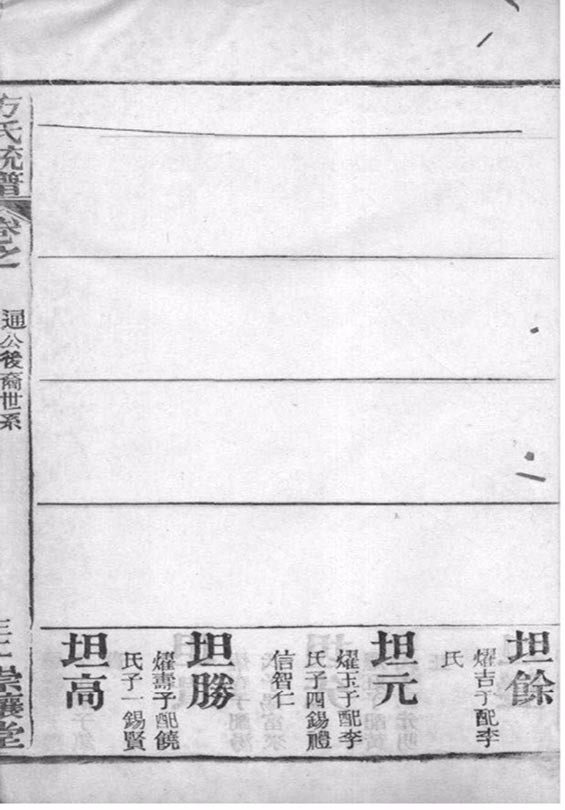 坦餘
燿吉子配李
氏
坦元
燿玉子配李
氏子四錫禮
信智仁
坦勝
燿壽子配饒
氏子一錫賢
坦高
方氏統譜
卷之
通公後裔世系
崇讓堂